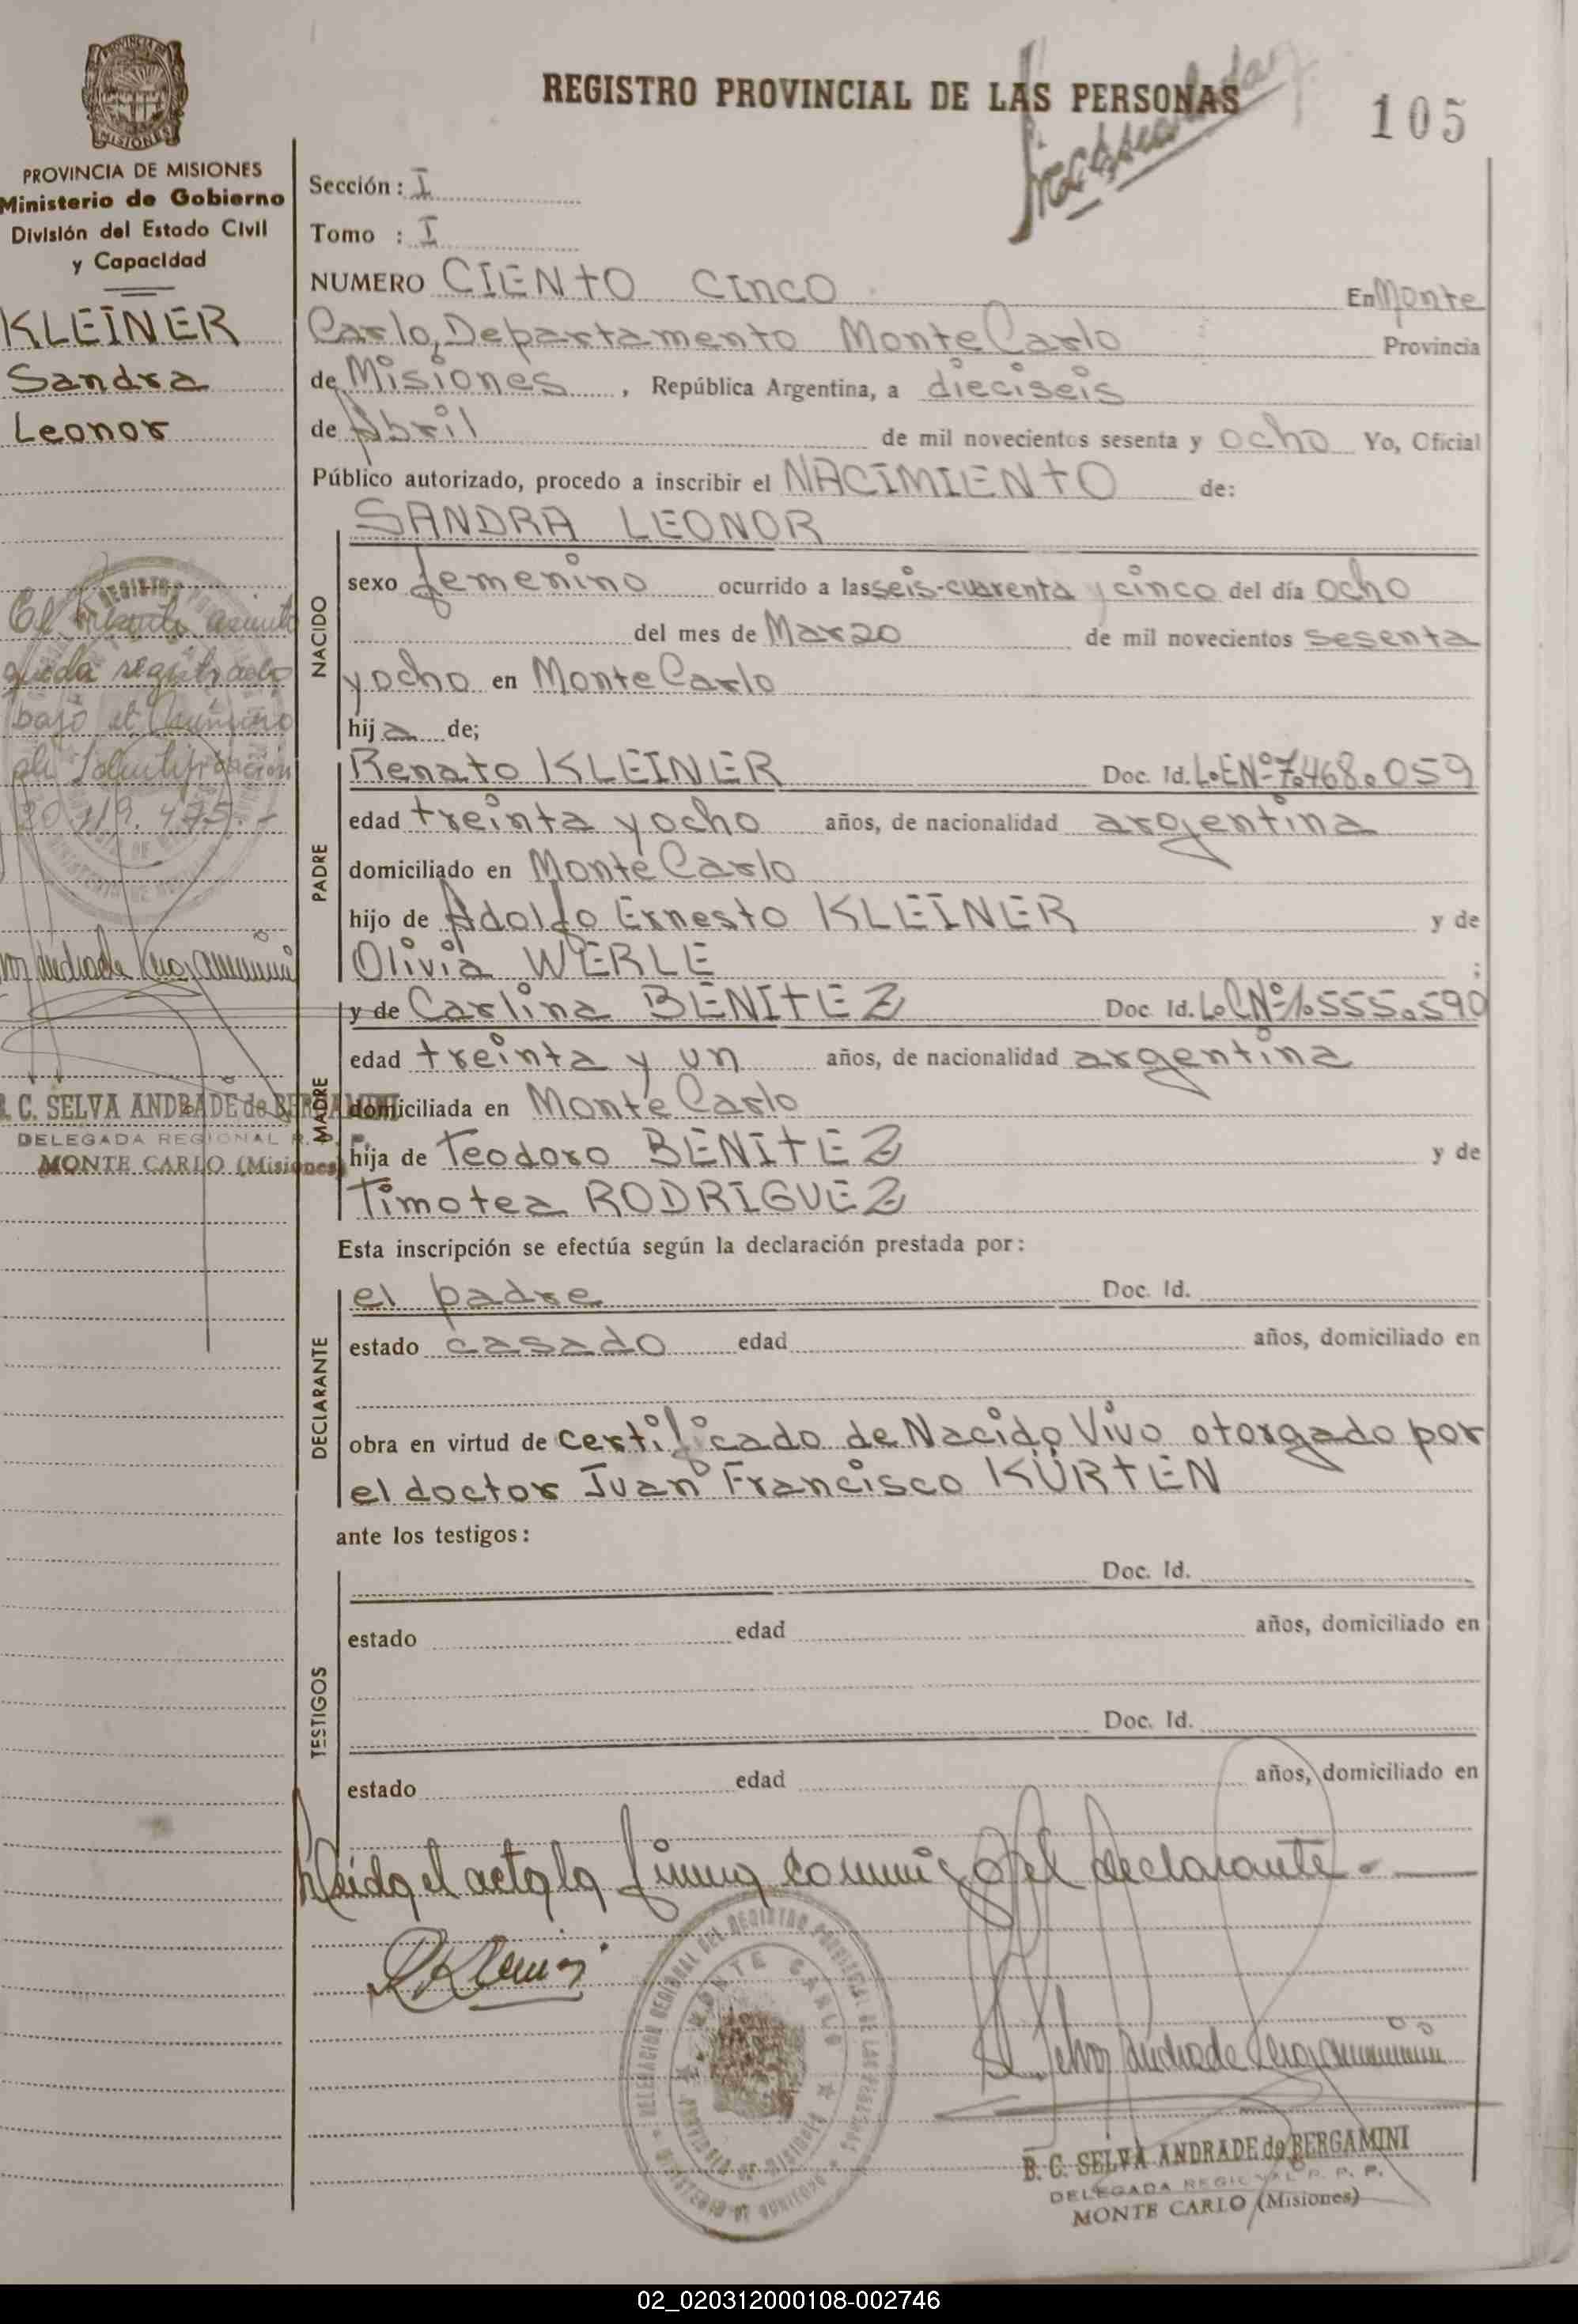 REGISTRO PROVINCIAL DE LAS PERSONAS
105
PROVINCIA DE MISIONES
Ministerio de Gobierno
División del Estado Civil
y Capacidad
KLEINER
Sandra
Leonor
El presente asiento
queda registrado
bajo el Número
de Identificación
20.119.475.-
B. C. SELVA ANDRADE de BERGAMINI
DELEGADA REGIONAL R. P. P.
MONTE CARLO (Misiones)
Sección: I
Tomo : I
NUMERO CIENTO CINCO En Monte
Carlo, Departamento Monte Carlo Provincia
de Misiones, República Argentina, a dieciseis
de Abril de mil novecientos sesenta y ocho Yo, Oficial
Público autorizado, procedo a inscribir el NACIMIENTO de:
NACIDO
SANDRA LEONOR
sexo femenino ocurrido a las seis-cuarenta y cinco del día ocho
del mes de Marzo de mil novecientos sesenta
y ocho en Monte Carlo
hija de;
PADRE
Renato KLEINER Doc. Id. L.E.Nº 7.468.059
edad treinta y ocho años, de nacionalidad argentina
domiciliado en Monte Carlo
hijo de Adolfo Ernesto KLEINER y de
Olivia WERLE ;
MADRE
y de Carlina BENITEZ Doc. Id. L.C.Nº 1.555.590
edad treinta y un años, de nacionalidad argentina
domiciliada en Monte Carlo
hija de Teodoro BENITEZ y de
Timotea RODRIGUEZ
Esta inscripción se efectúa según la declaración prestada por:
DECLARANTE
el padre Doc. Id.
estado casado edad años, domiciliado en
obra en virtud de certificado de Nacido Vivo otorgado por
el doctor Juan Francisco KÜRTEN
ante los testigos:
TESTIGOS
Doc. Id.
estado edad años, domiciliado en
Doc. Id.
estado edad años, domiciliado en
Leída el acta la firma conmigo el declarante.-
DELEGACION REGIONAL DEL REGISTRO PROVINCIAL DE LAS PERSONAS
MONTE CARLO
PROVINCIA DE MISIONES
B. C. SELVA ANDRADE de BERGAMINI
DELEGADA REGIONAL R. P. P.
MONTE CARLO (Misiones)
02_020312000108-002746